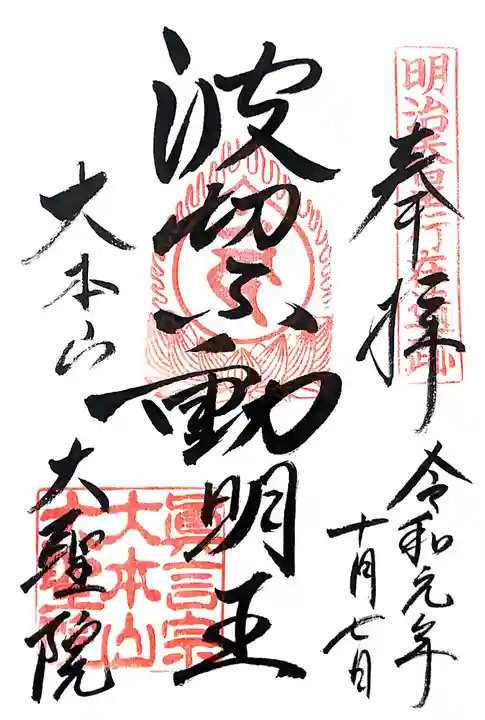 奉拝
明治天皇行在所遺跡
令和元年
十月七日
波切不動明王
大本山
大聖院
眞言宗
大本山
大聖院